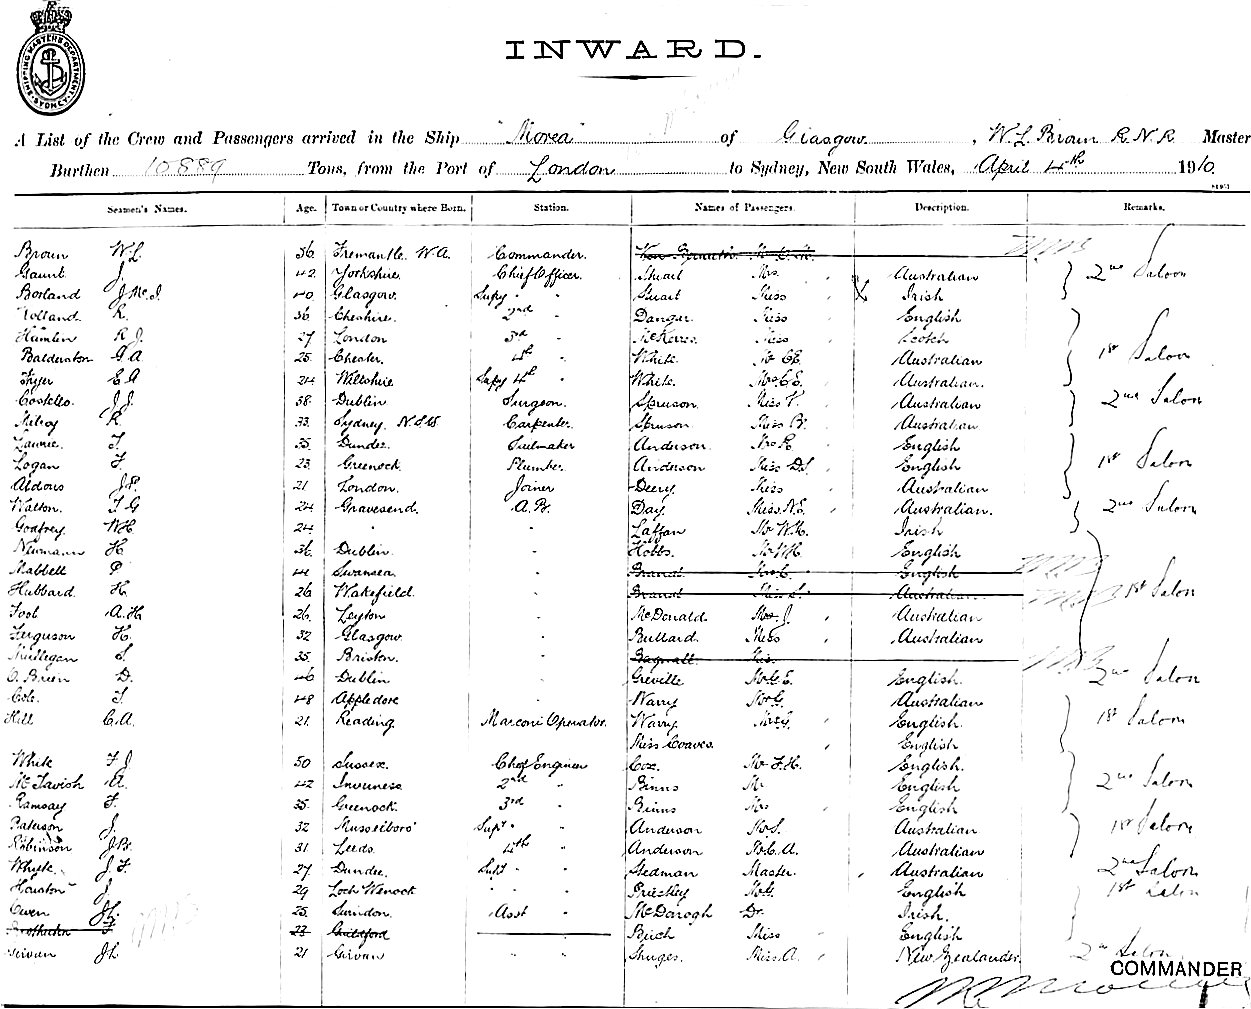 SHIPPING MASTERS DEPARTMENT SYDNEY
INWARD.
A List of the Crew and Passengers arrived in the Ship "Morea" of Glasgow, W. L. Broun R.N.R. Master
Burthen 10889 Tons, from the Port of London to Sydney, New South Wales, April 4th 1910
Seamen's Names. Age. Town or Country where Born. Station. Names of Passengers. Description. Remarks.
Broun W.L. 56 Fremantle. W.A. Commander.
Gaunt J. 42 Yorkshire. Chief Officer. Stuart Mrs. Australian 2nd Saloon
Borland J. Mc.I. 40 Glasgow. Supy " " Stuart Miss Irish
Holland R. 36 Cheshire. 2nd " Danger. Miss English
Hamlin R J. 27 London 3rd " Miss Scotch
Balderston G A 25 Chester. 4th " White. Mr C E. Australian 1st Saloon
Fryer E A 24 Wiltshire Supy 4th " White. Mrs C.E. Australian.
Costello. J.J. 38 Dublin Surgeon. Spruson. Miss V. Australian 2nd Saloon
Milroy R. 33 Sydney. N.S.W. Carpenter. Spruson Miss B. Australian.
Lawrie. F. 35 Dundee. Anderson. Mrs R. English
Logan F. 23 Greenock. Plumber. Anderson Miss D.S. English 1st Saloon
Aldous J.P. 21 London. Joiner Deery. Miss Australian
Walton. F G 24 Gravesend. A.B. Day. Miss N.E. Australian. 2nd Saloon
Godfrey. W H. 24 " " Laffan Mr W.H. Irish.
Neumann H. 36 Dublin. " Hobbs. Mr W H. English
Mabbell P 44 Swansea. " Brand. Mrs C. English
Hubbard H. 26 Wakefield. " Brand Miss S. Australian. 1st Saloon
Foot A. H. 26 Leyton " McDonald Mrs. J. Australian
Ferguson H. 32 Glasgow. " Bullard. Miss Australian
Mulligan J. 35 Briston. " Bagnall. Miss
O. Brien D. 46 Dublin " Greville Mr G. E. English. 2nd Saloon
Cole. F. 48 Appledore " Warry Mr G. Australian
Hill C.A. 21 Reading. Marconi Operator. Warry. Mrs G. English. 1st Saloon
Miss Coaves. English
White F J 50 Sussex. Chief Engineer Cox. Mr F. H. English.
McTavish A. 42 Inverness 2nd " Binns Mr English 2nd Saloon
Ramsay F. 35 Greenock. 3rd " Binns Mrs English
Paterson J. 32 Musselboro' Supy " " Anderson Mr S. Australian 1st Saloon
Robinson J.B. 31 Leeds. 4th " Anderson Mr C. A. Australian
Whyte. J. F. 27 Dundee. Supy " Stedman Master. Australian 2nd Saloon
Houston J. 29 Loch Winoch " " Priestley Mr G. English 1st Saloon
Owen 25 Swindon. Asst " McDarogh Dr. Irish.
23 Guildford Birch Miss English
Girvan J L 21 Girvan " " Miss A. New Zealander. 2nd Saloon
COMMANDER